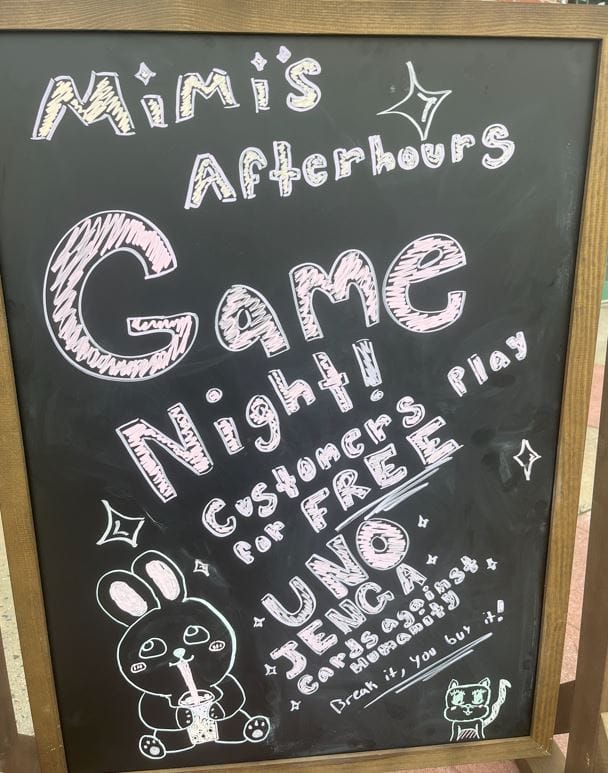 Mimi's
Afterhours
Game
Night!
Customers Play
for FREE
UNO
JENGA
Cards against
Humanity
Break it, you buy it!